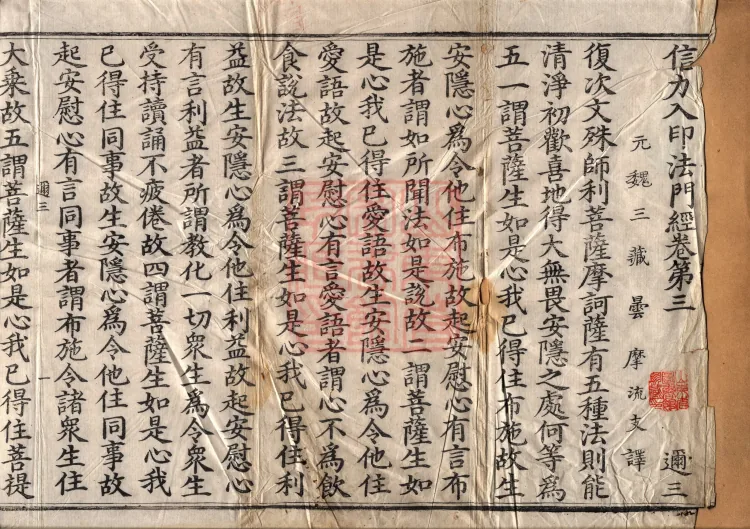 信力入印法門經卷第三 邇三
元魏三藏曇摩流支譯
復次文殊師利菩薩摩訶薩有五種法則能
清淨初歡喜地得大無畏安隱之處何等為
五一謂菩薩生如是心我已得住布施故生
安隱心為令他住布施故起安慰心有言布
施者謂如所聞法如是說故二謂菩薩生如
是心我已得住愛語故生安隱心為令他住
愛語故起安慰心有言愛語者謂心不為飲
食說法故三謂菩薩生如是心我已得住利
益故生安隱心為令他住利益故起安慰心
有言利益者所謂教化一切眾生為令眾生
受持讀誦不疲倦故四謂菩薩生如是心我
已得住同事故生安隱心為令他住同事故
邇三 一
起安慰心有言同事者謂布施令諸眾生住
大乘故五謂菩薩生如是心我已得住菩提